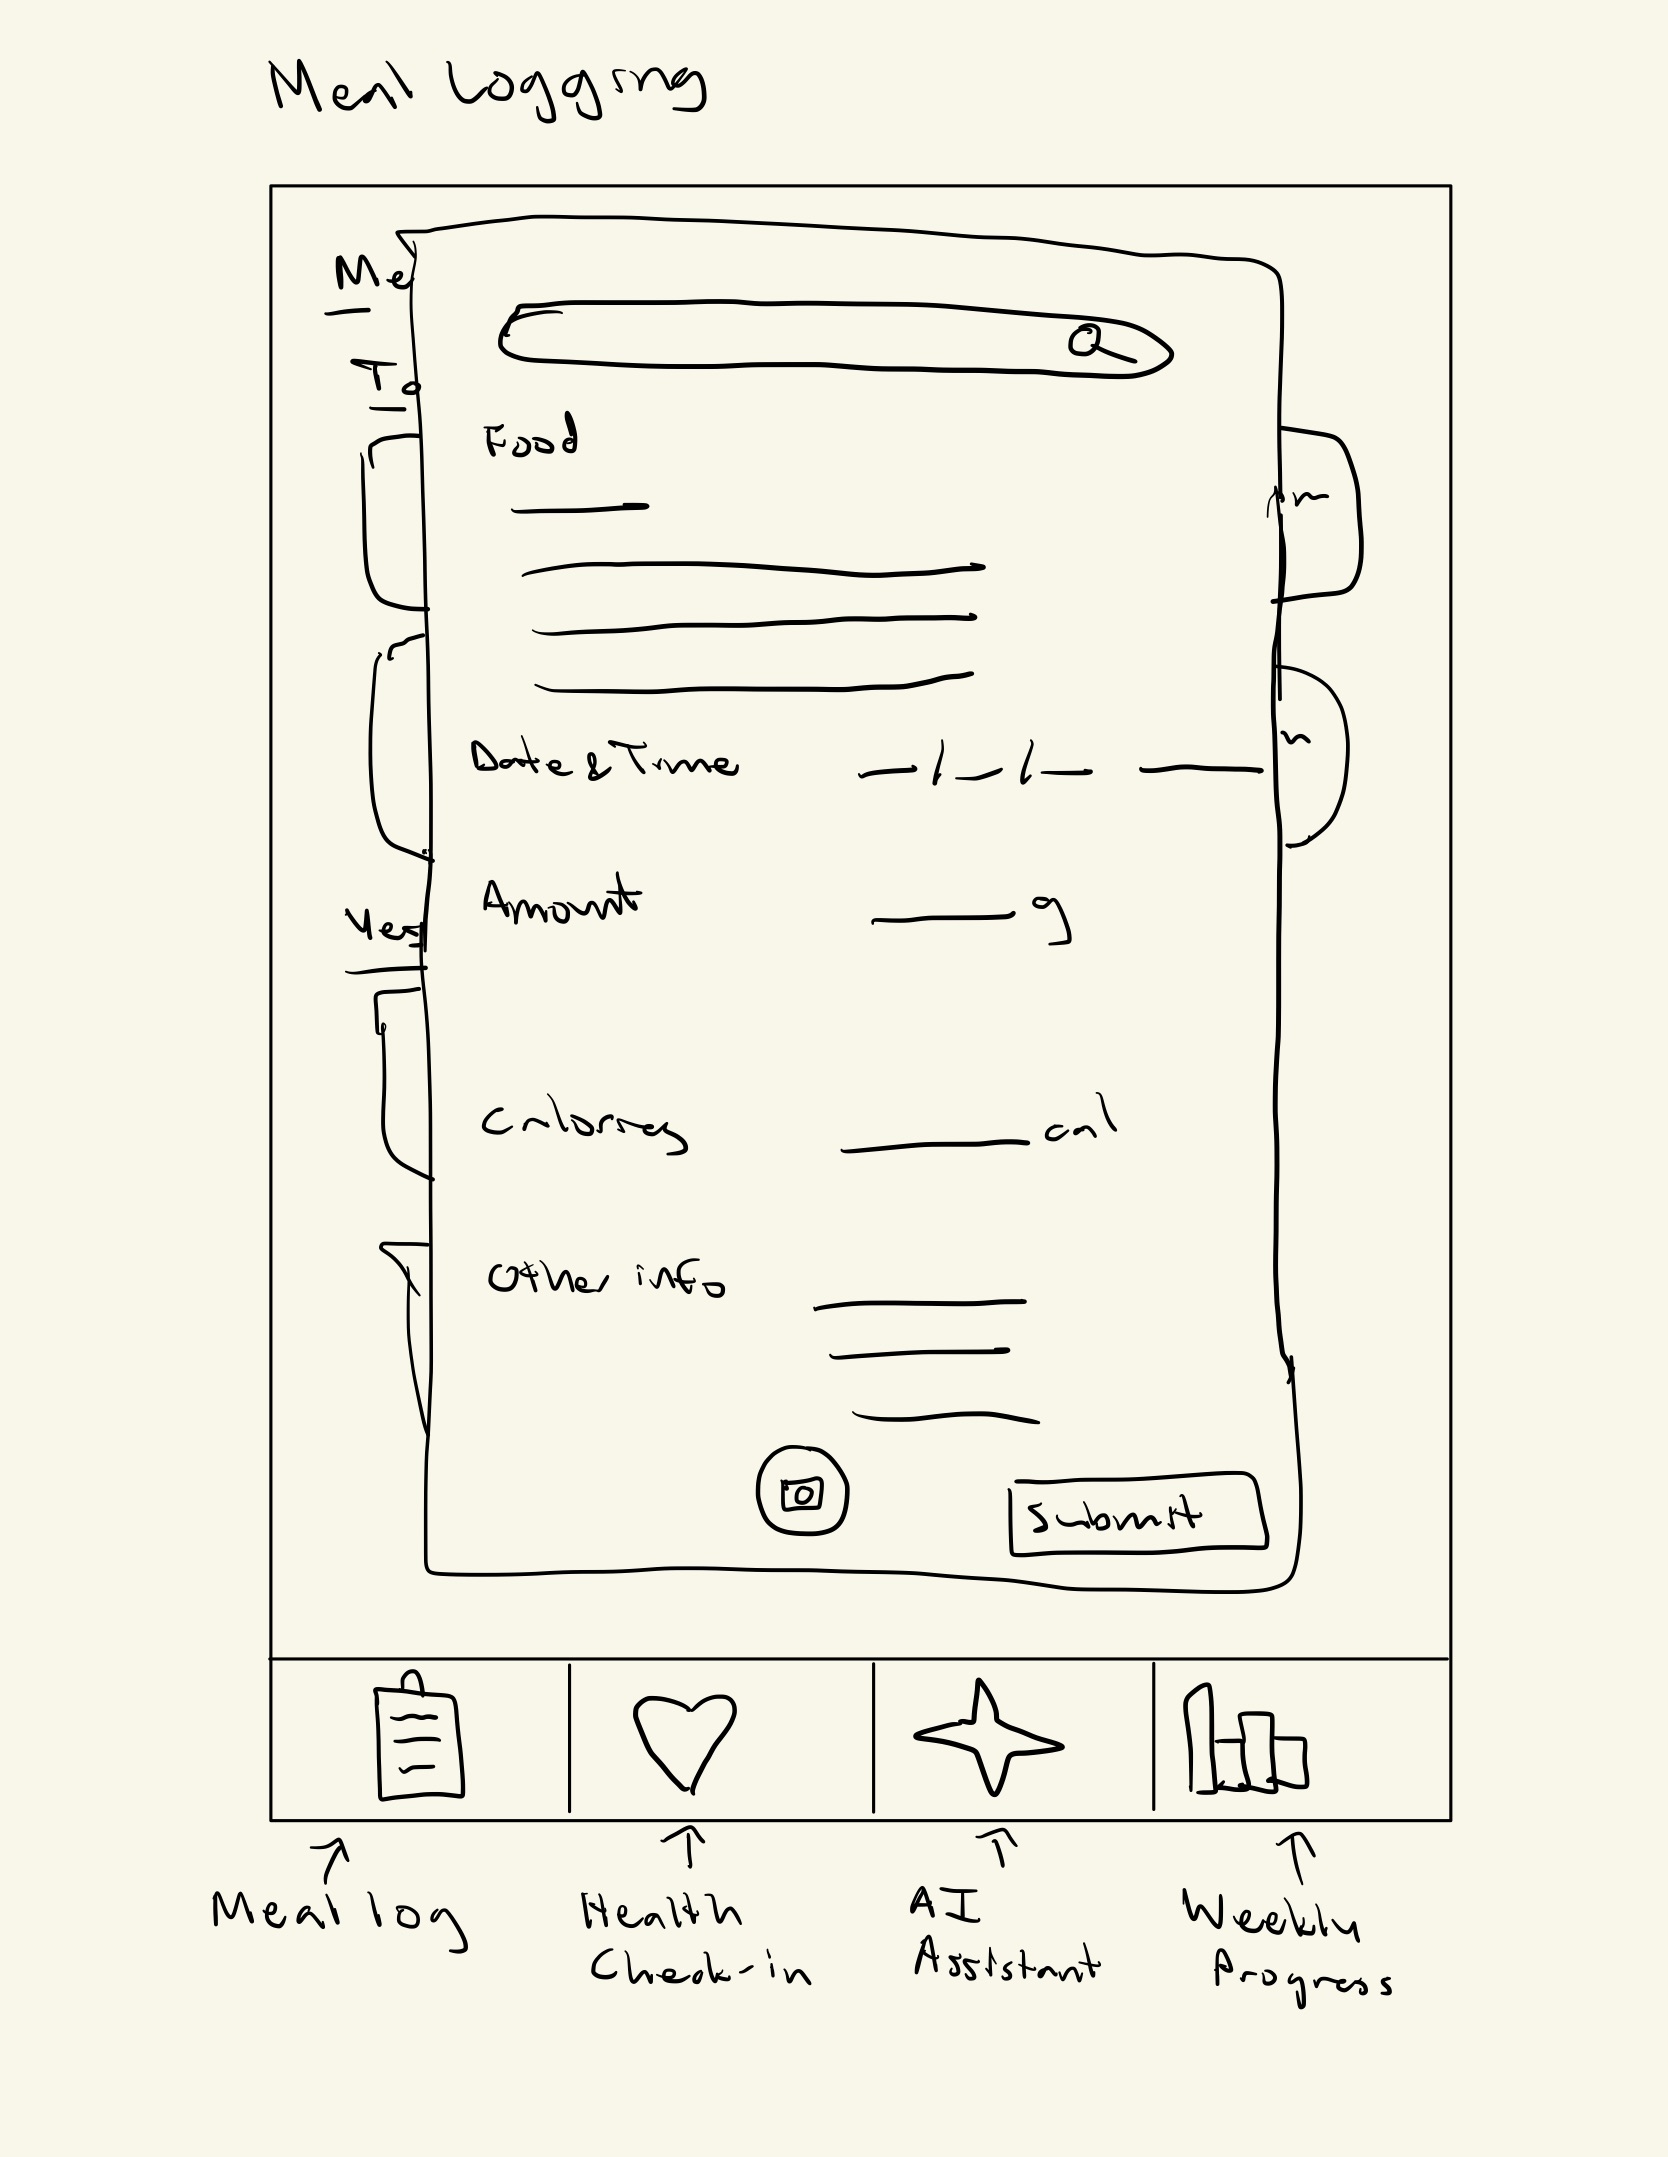 Meal Logging
Me
To
Food
Date & Time _/_/_
Amount g
Yes
Calories cal
Other info
Submit
Meal log
Health Check-in
AI Assistant
Weekly Progress